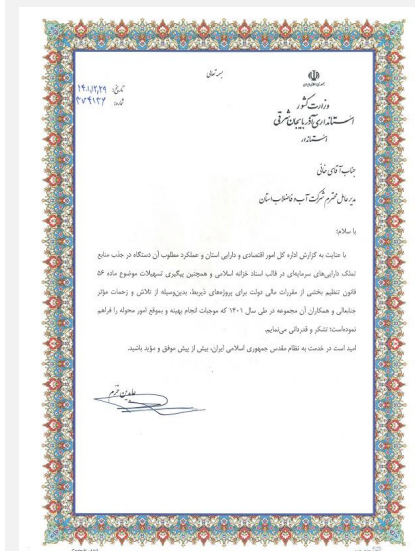 بسمه تعالی
تاریخ: ۱۴۰۱,۱۲,۲۹
شماره: ۳۷۴۱۳۴
وزارت کشور
استانداری آذربایجان شرقی
استاندار
جناب آقای خانی
مدیرعامل محترم شرکت آب و فاضلاب استان
با سلام؛
با عنایت به گزارش اداره کل امور اقتصادی و دارایی استان و عملکرد مطلوب آن دستگاه در جذب منابع
تملک دارایی‌های سرمایه‌ای در قالب اسناد خزانه اسلامی و همچنین پیگیری تسهیلات موضوع ماده ۵۶
قانون تنظیم بخشی از مقررات مالی دولت برای پروژه‌های ذیربط، بدین‌وسیله از تلاش و زحمات مؤثر
جنابعالی و همکاران آن مجموعه در طی سال ۱۴۰۱ که موجبات انجام بهینه و بموقع امور محوله را فراهم
نموده‌است؛ تشکر و قدردانی می‌نمایم.
امید است در خدمت به نظام مقدس جمهوری اسلامی ایران، بیش از پیش موفق و مؤید باشید.
عابدین خرم